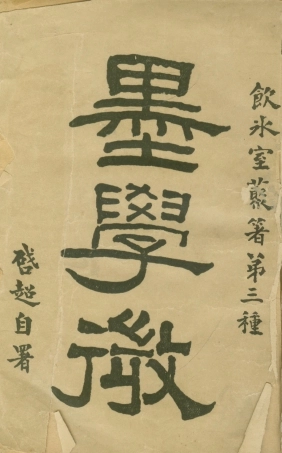 飲氷室叢箸第三種
墨學微
啓超自署